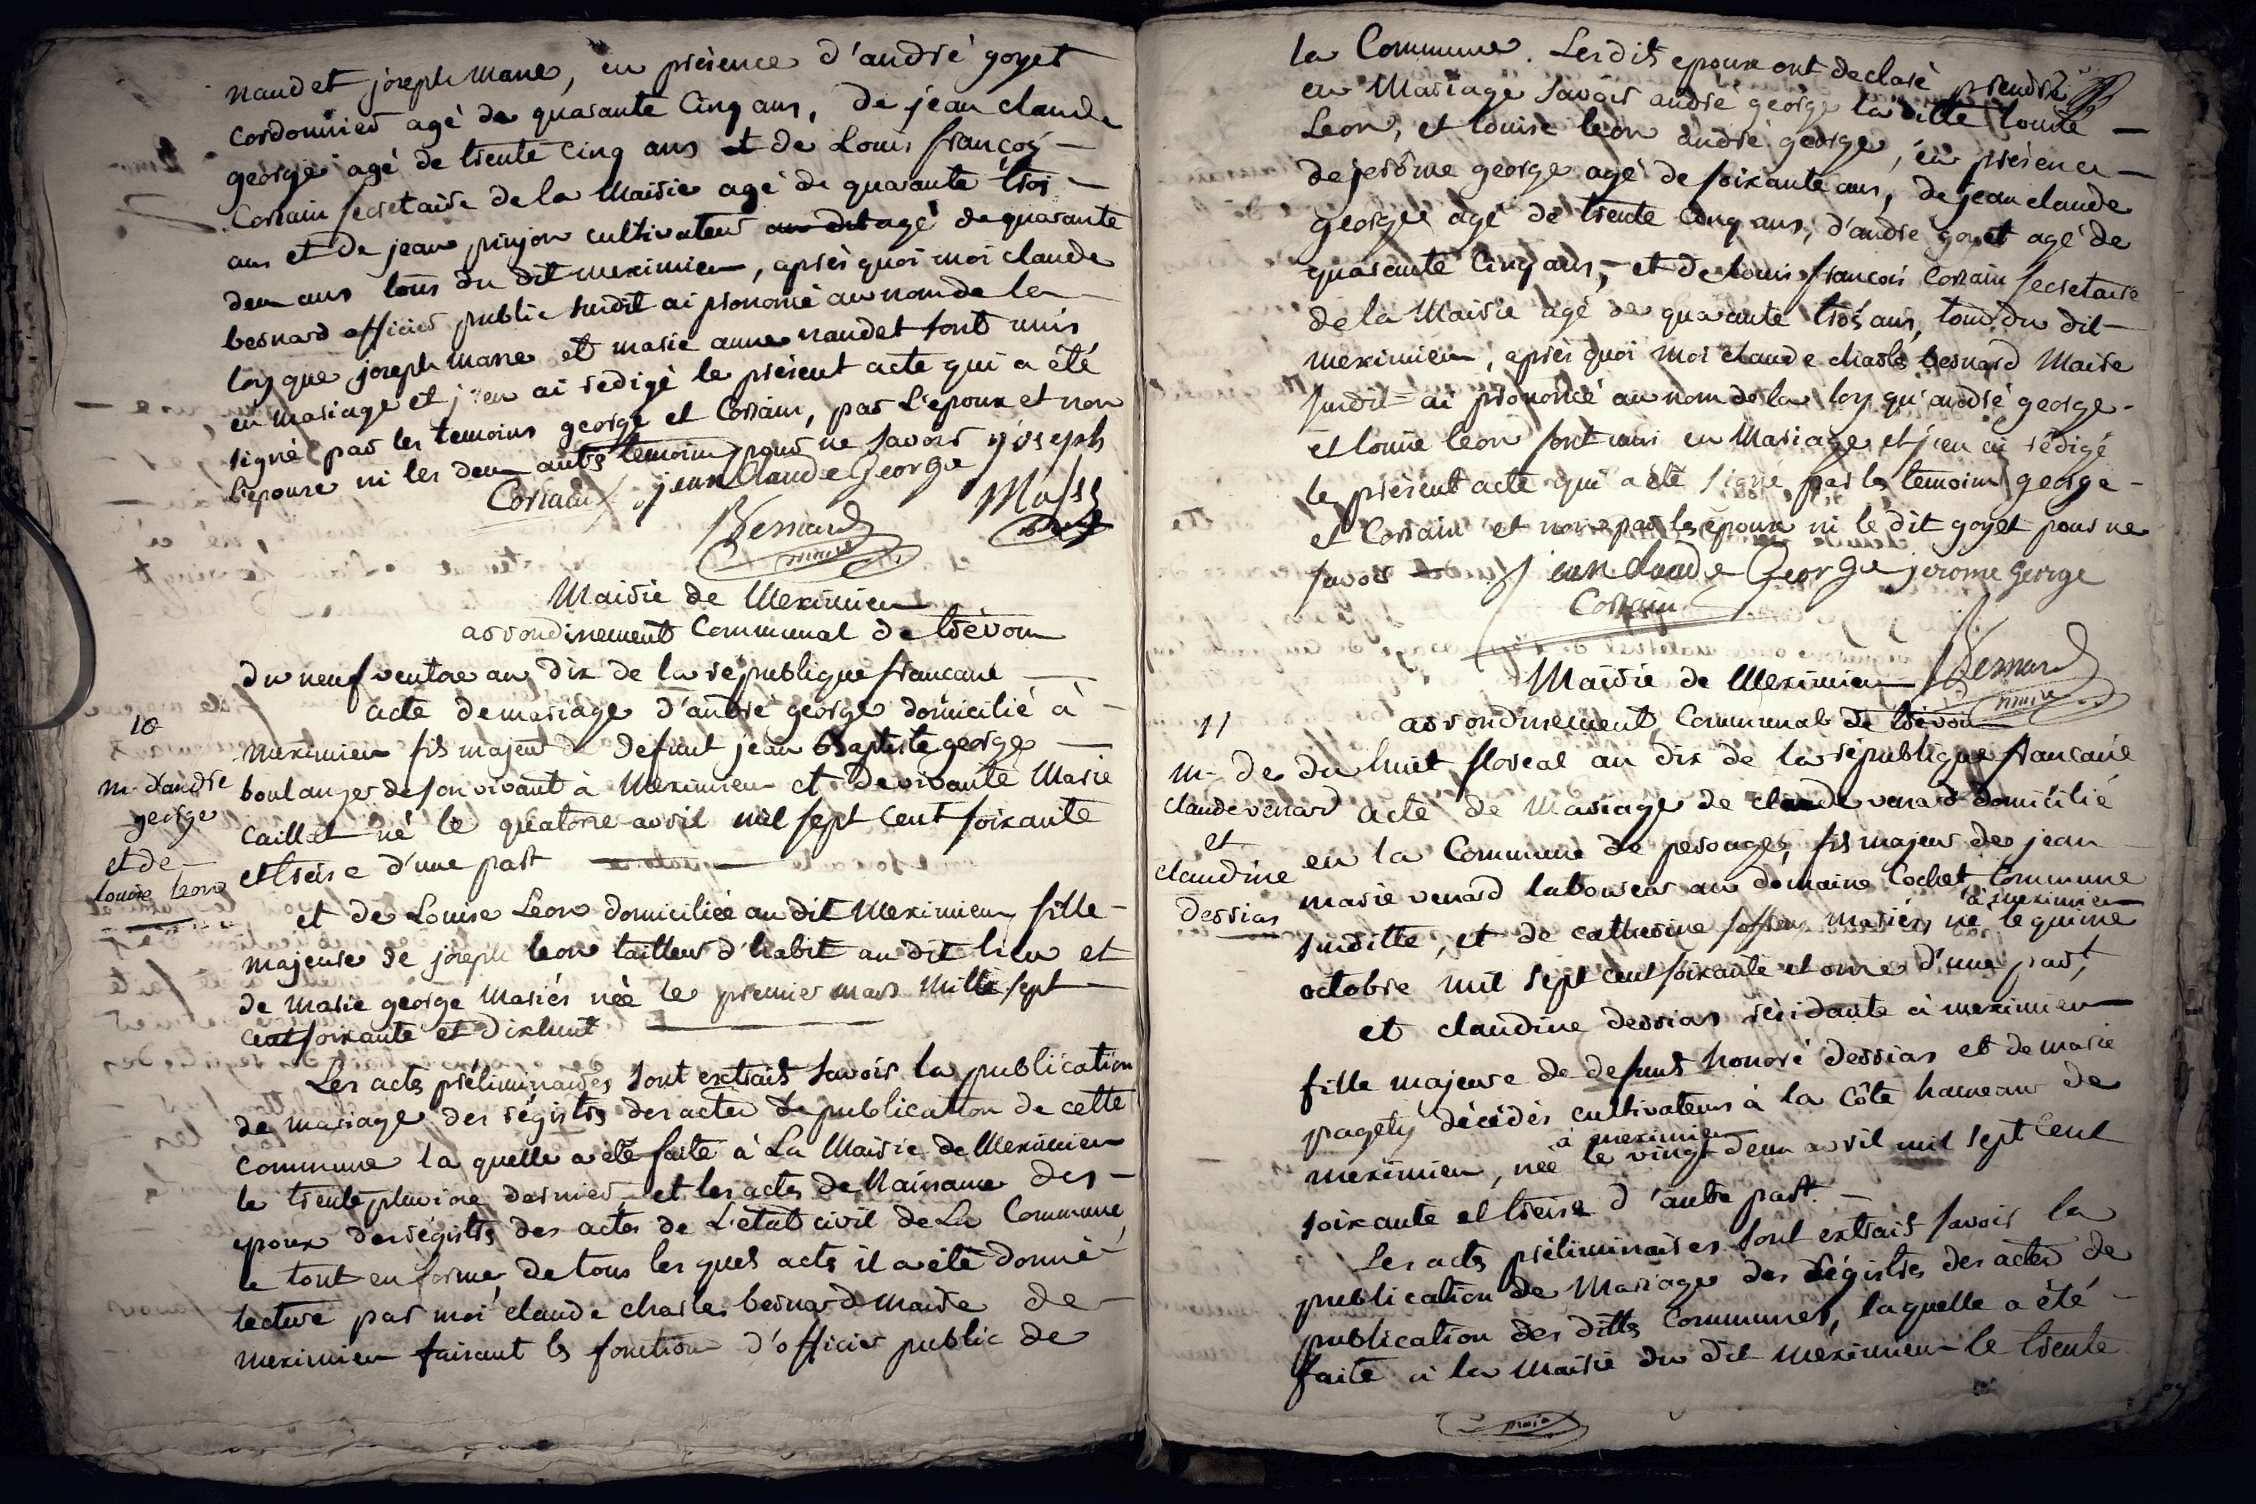 naudet joseph Mane, en présence d'andré goyet
cordonnier agé de quarante Cinq ans, de jean claude
george agé de trente cinq ans et de Louis françois
Corrain secretaire de la Mairie agé de quarante trois
ans et de jean pinjon cultivateur au dit agé de quarante
deux ans tous du dit meximieux, après quoi moi claude
bernard officier public susdit ai prononcé au nom de la
loy que joseph mane et marie anne naudet sont unis
en mariage et j'en ai rédigé le présent acte qui a été
signé par les temoins george et Corrain, par L'epoux et non
l'epouse ni les deux autres temoins pour ne savoir
jean Claude George joseph
Corrain
Mass
Bernard
maire
Mairie de Meximieux
arrondissement Communal de trévoux
du neuf ventose an dix de la république francaise
10
acte de mariage d'andré george domicilié à
meximieux fils majeur de defunt jean Baptiste george
m. d'andré
george
et de
louise leon
boulanger de son vivant à Meximieux et de vivante Marie
Caillat né le quatorze avril mil sept cent soixante
et treise d'une part
et de Louise Leon domiciliée au dit Meximieux fille
majeure de joseph leon tailleur d'habit au dit lieu et
de Marie george Mariés née le premier mars Mille sept
cent soixante et dixhuit
Les actes préliminaires sont extraits savoir la publication
de mariage des régistres des actes de publication de cette
commune la quelle a été faite à La Mairie de Meximieux
le trente pluviose dernier et les actes de Naissance des
epoux des régistres des actes de L'état civil de La Commune,
le tout en forme, de tous les quels actes il a été donné
lecture par moi claude charles bernard maire de
meximieux faisant les fonction d'officier public de
la Commune. Les dits epoux ont declaré prendre
en Mariage savoir andré george la ditte louise
Leon, et louise leon andré george, en présence
de jérôme george agé de soixante ans, de jean claude
george agé de trente cinq ans, d'andré goyet agé de
quarante Cinq ans, et de Louis françois Corrain secretaire
de la Mairie agé de quarante trois ans, tous du dit
meximieux, après quoi moi claude charles bernard Maire
susdit ai prononcé au nom de la loy qu'andré george
et louise leon sont unis en Mariage et j'en ai rédigé
le présent acte qui a été signé par les temoins george
et Corrain et non par les epoux ni le dit goyet pour ne
savoir
jean claude George jerome George
Corrain
Bernard
maire
Mairie de Meximieux
arrondissement Communal de trévoux
11
m. de
claude venard
et
claudine
derrias
du huit floreal an dix de la république francaise
acte de Mariage de claude venard domicilié
en la Commune de perouges, fils majeur de jean
marie venard laboureur au domaine Cochet Commune
susditte, et de catherine mariés né à meximieux le quinze
octobre mil sept cent soixante et onze d'une part,
et claudine derrias résidante à meximieux
fille majeure de defunts honoré derrias et de marie
pagety décédés cultivateurs à la Côte hameau de
meximieux, née à meximieux le vingt deux avril mil sept cent
soixante et treise d'autre part.
Les actes préliminaires sont extraits savoir la
publication de Mariage des Régistres des actes de
publication des dittes Communes, laquelle a été
faite à la Mairie du dit meximieux le trente